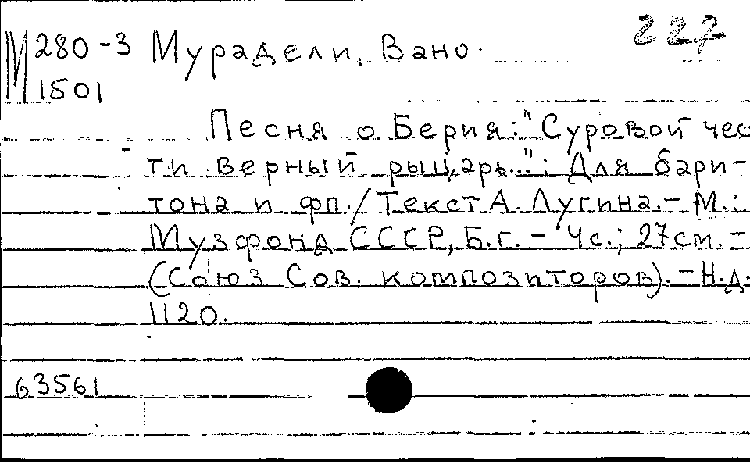 М 280-3 Мурадели, Вано. 227
1501
Песня о Берия: "Суровой чес
ти верный рыцарь.": Для бари-
тона и фп./Текст А. Лугина.- М.:
Музфонд СССР, Б.г. - 4с.; 27см. -
(Союз Сов. композиторов). - Н.д.
1120.
63561